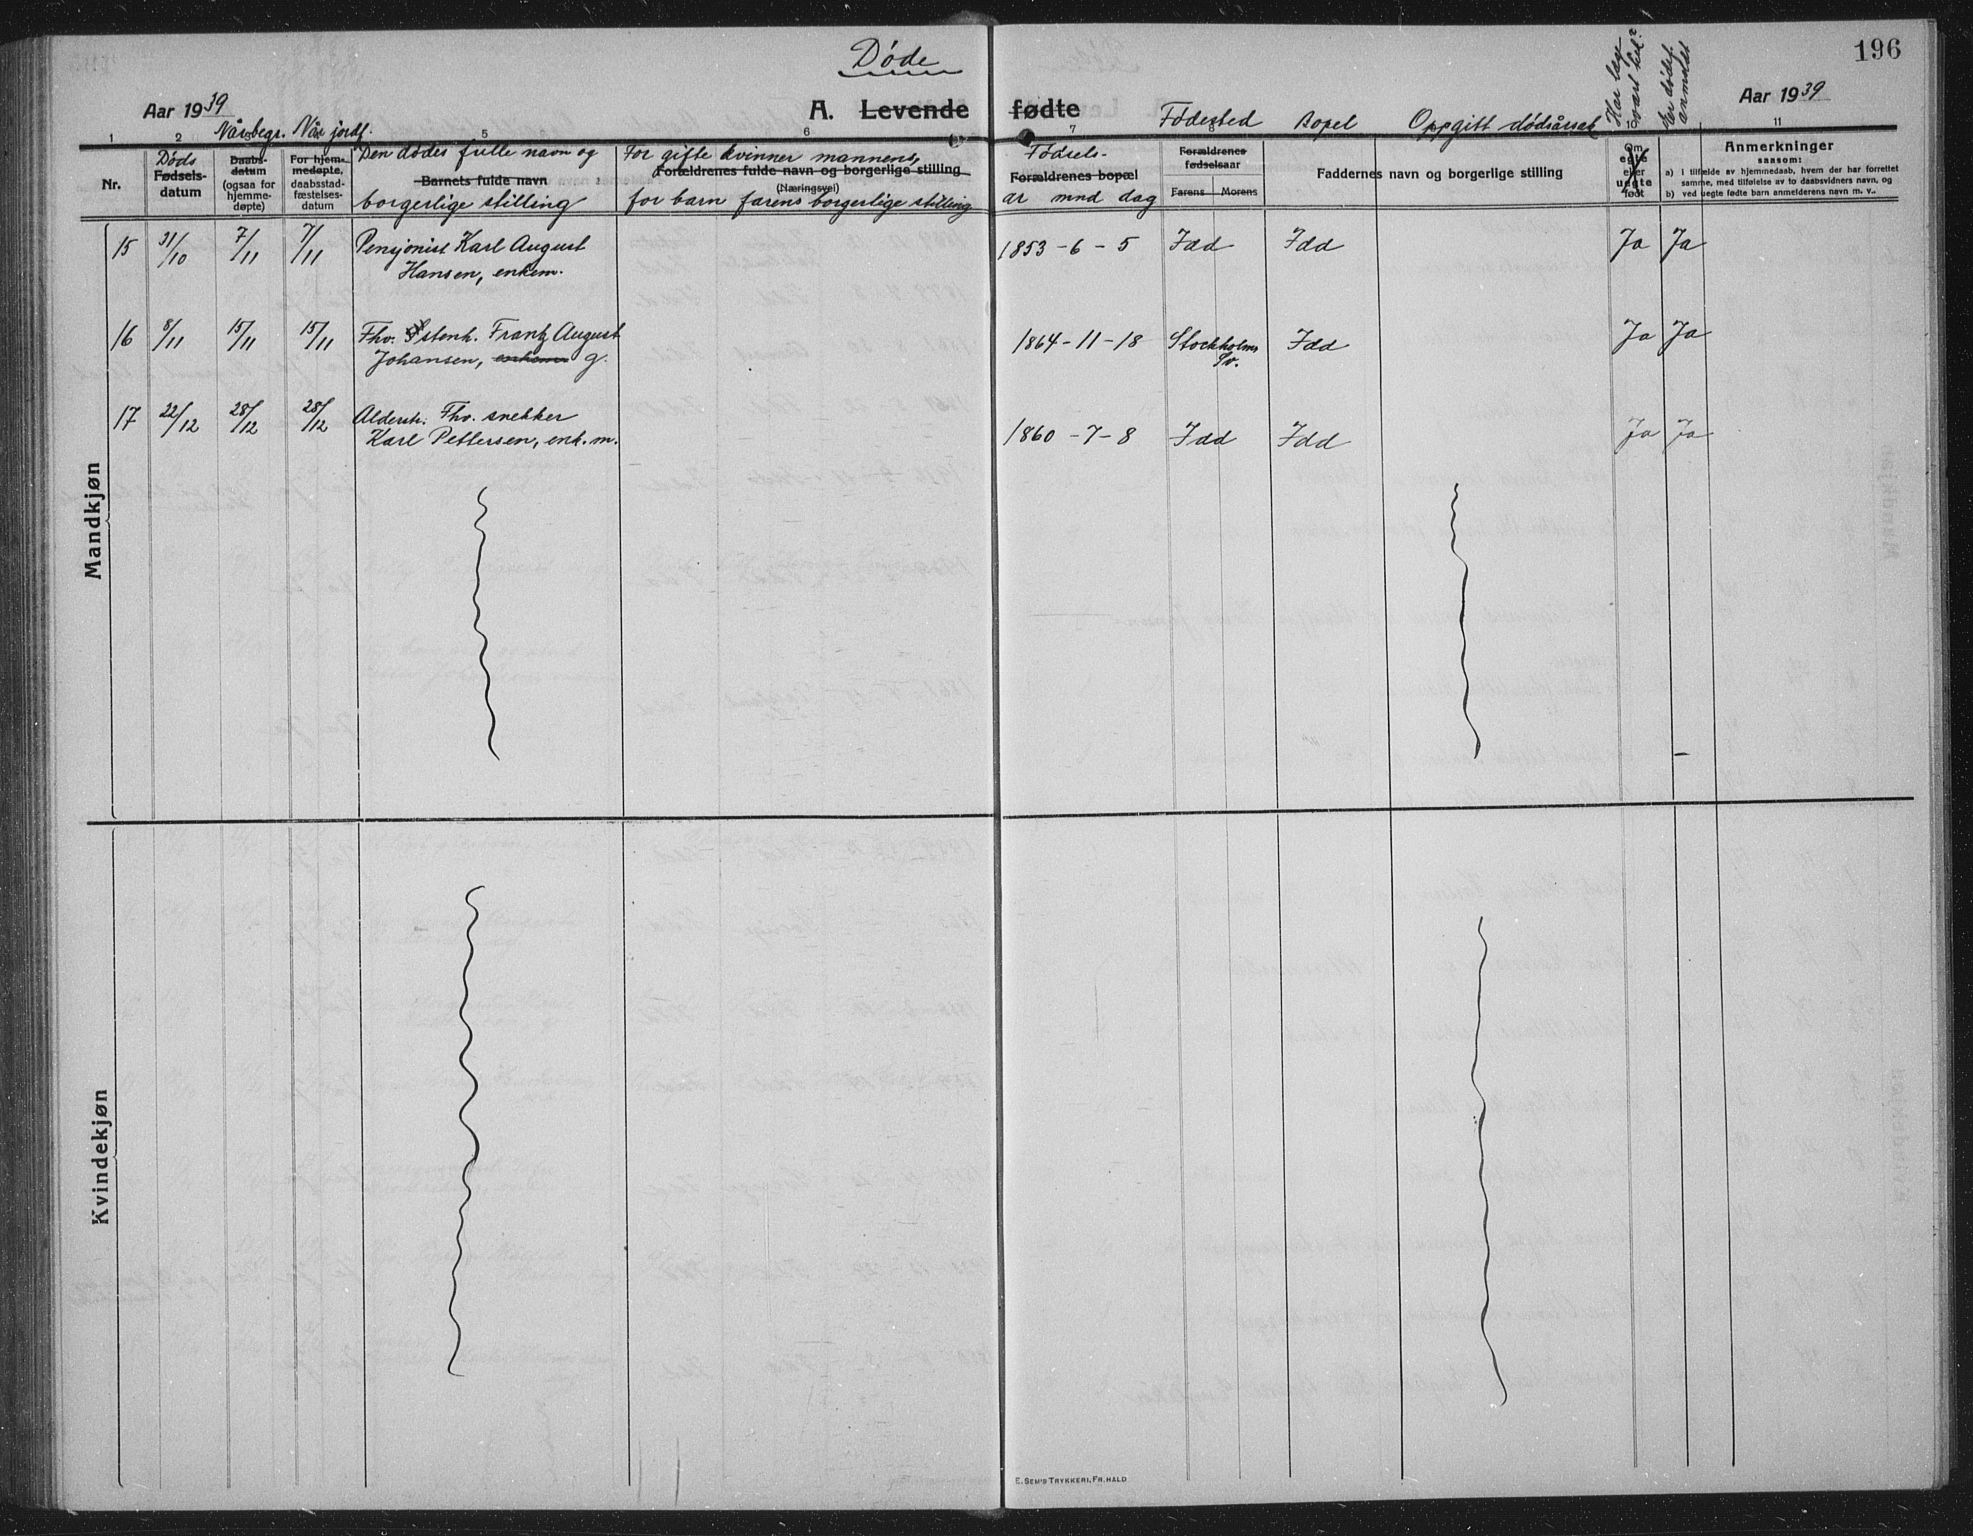 Døde
196
Aar 1939
A. Levende fødte
Aar 1939
Når begr. Når jordf.
Fødested Bopel Oppgitt dødsårsak
Har læge vært hel?
Er dødsf. anmeldt
1 2 5 6 7 8 10 11
Nr.
Døds
Fødsels-
datum
Daabs-
datum
(ogsaa for
hjemme-
døpte)
For hjem-
medøpte,
daabsstad-
fæstelses-
datum
Den dødes fulle navn og
Barnets fulde navn
borgerlige stilling
For gifte kvinner mannens,
Forældrenes fulde navn og borgerlige stilling
(Næringsvei)
for barn farens borgerlige stilling
Fødsels-
Forældrenes bopæl
år mnd dag
Forældrenes
fødselsaar
Farens Morens
Faddernes navn og borgerlige stilling
Om
egte
eller
uegte
født
Anmerkninger
saasom:
a) i tilfælde av hjemmedaab, hvem der har forrettet
samme, med tilføielse av to daabsvidners navn, og
b) ved uegte fødte barn anmelderens navn m. v..
Mandkjøn
15 31/10 7/11 7/11 Pensjonist Karl August 1853-6-5 Idd Idd Ja Ja
Hansen, enkem.
16 8/11 15/11 15/11 Fhv. stenh. Frantz August 1864-11-18 Stockholm Idd Ja Ja
Johansen, enkem g. Sv.
17 22/12 28/12 28/12 Alderstr. Fhv. snekker
Karl Pettersen, enk.m. 1860-7-8 Idd Idd Ja Ja
Kvindekjøn
E. SEM'S TRYKKERI, FR.HALD